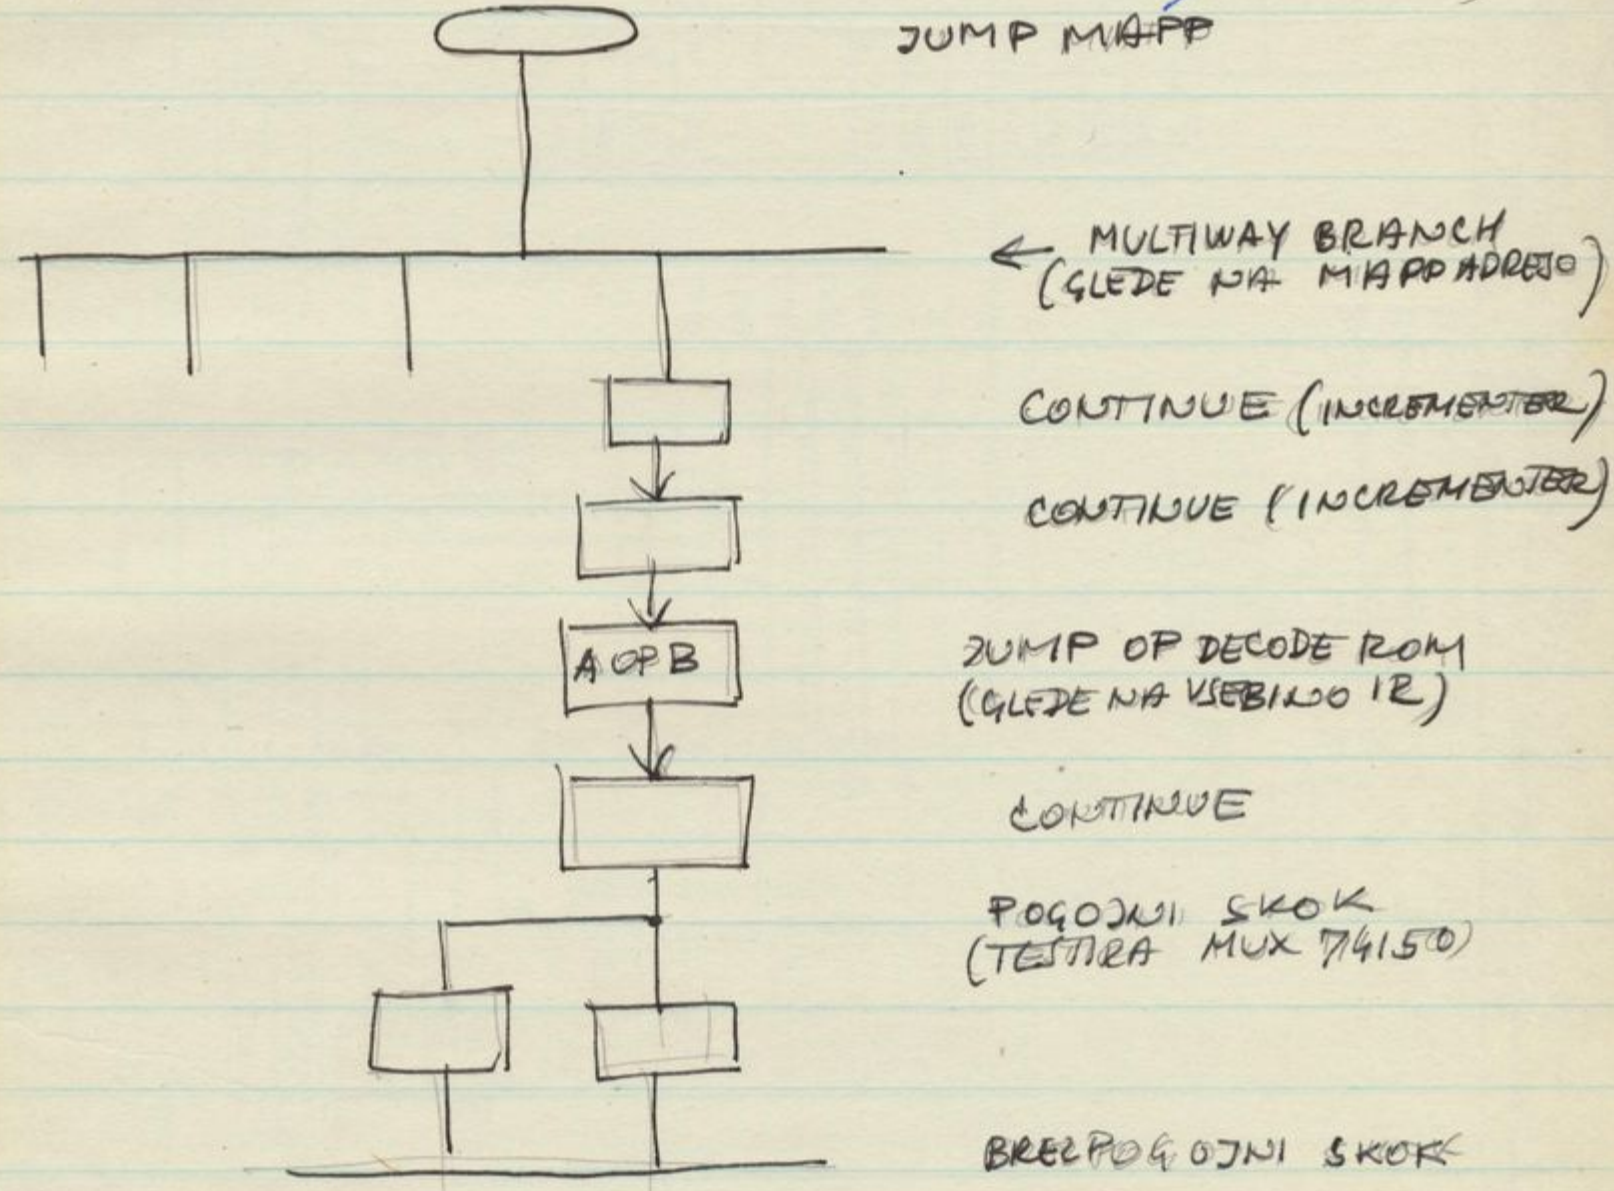 JUMP MAPP
← MULTIWAY BRANCH
(GLEDE NA MAPP ADRESO)
CONTINUE (INCREMENTER)
CONTINUE (INCREMENTER)
A OP B
JUMP OP DECODE ROM
(GLEDE NA VSEBINO IR)
CONTINUE
POGOJNI SKOK
(TESTIRA MUX 74150)
BREZPOGOJNI SKOK